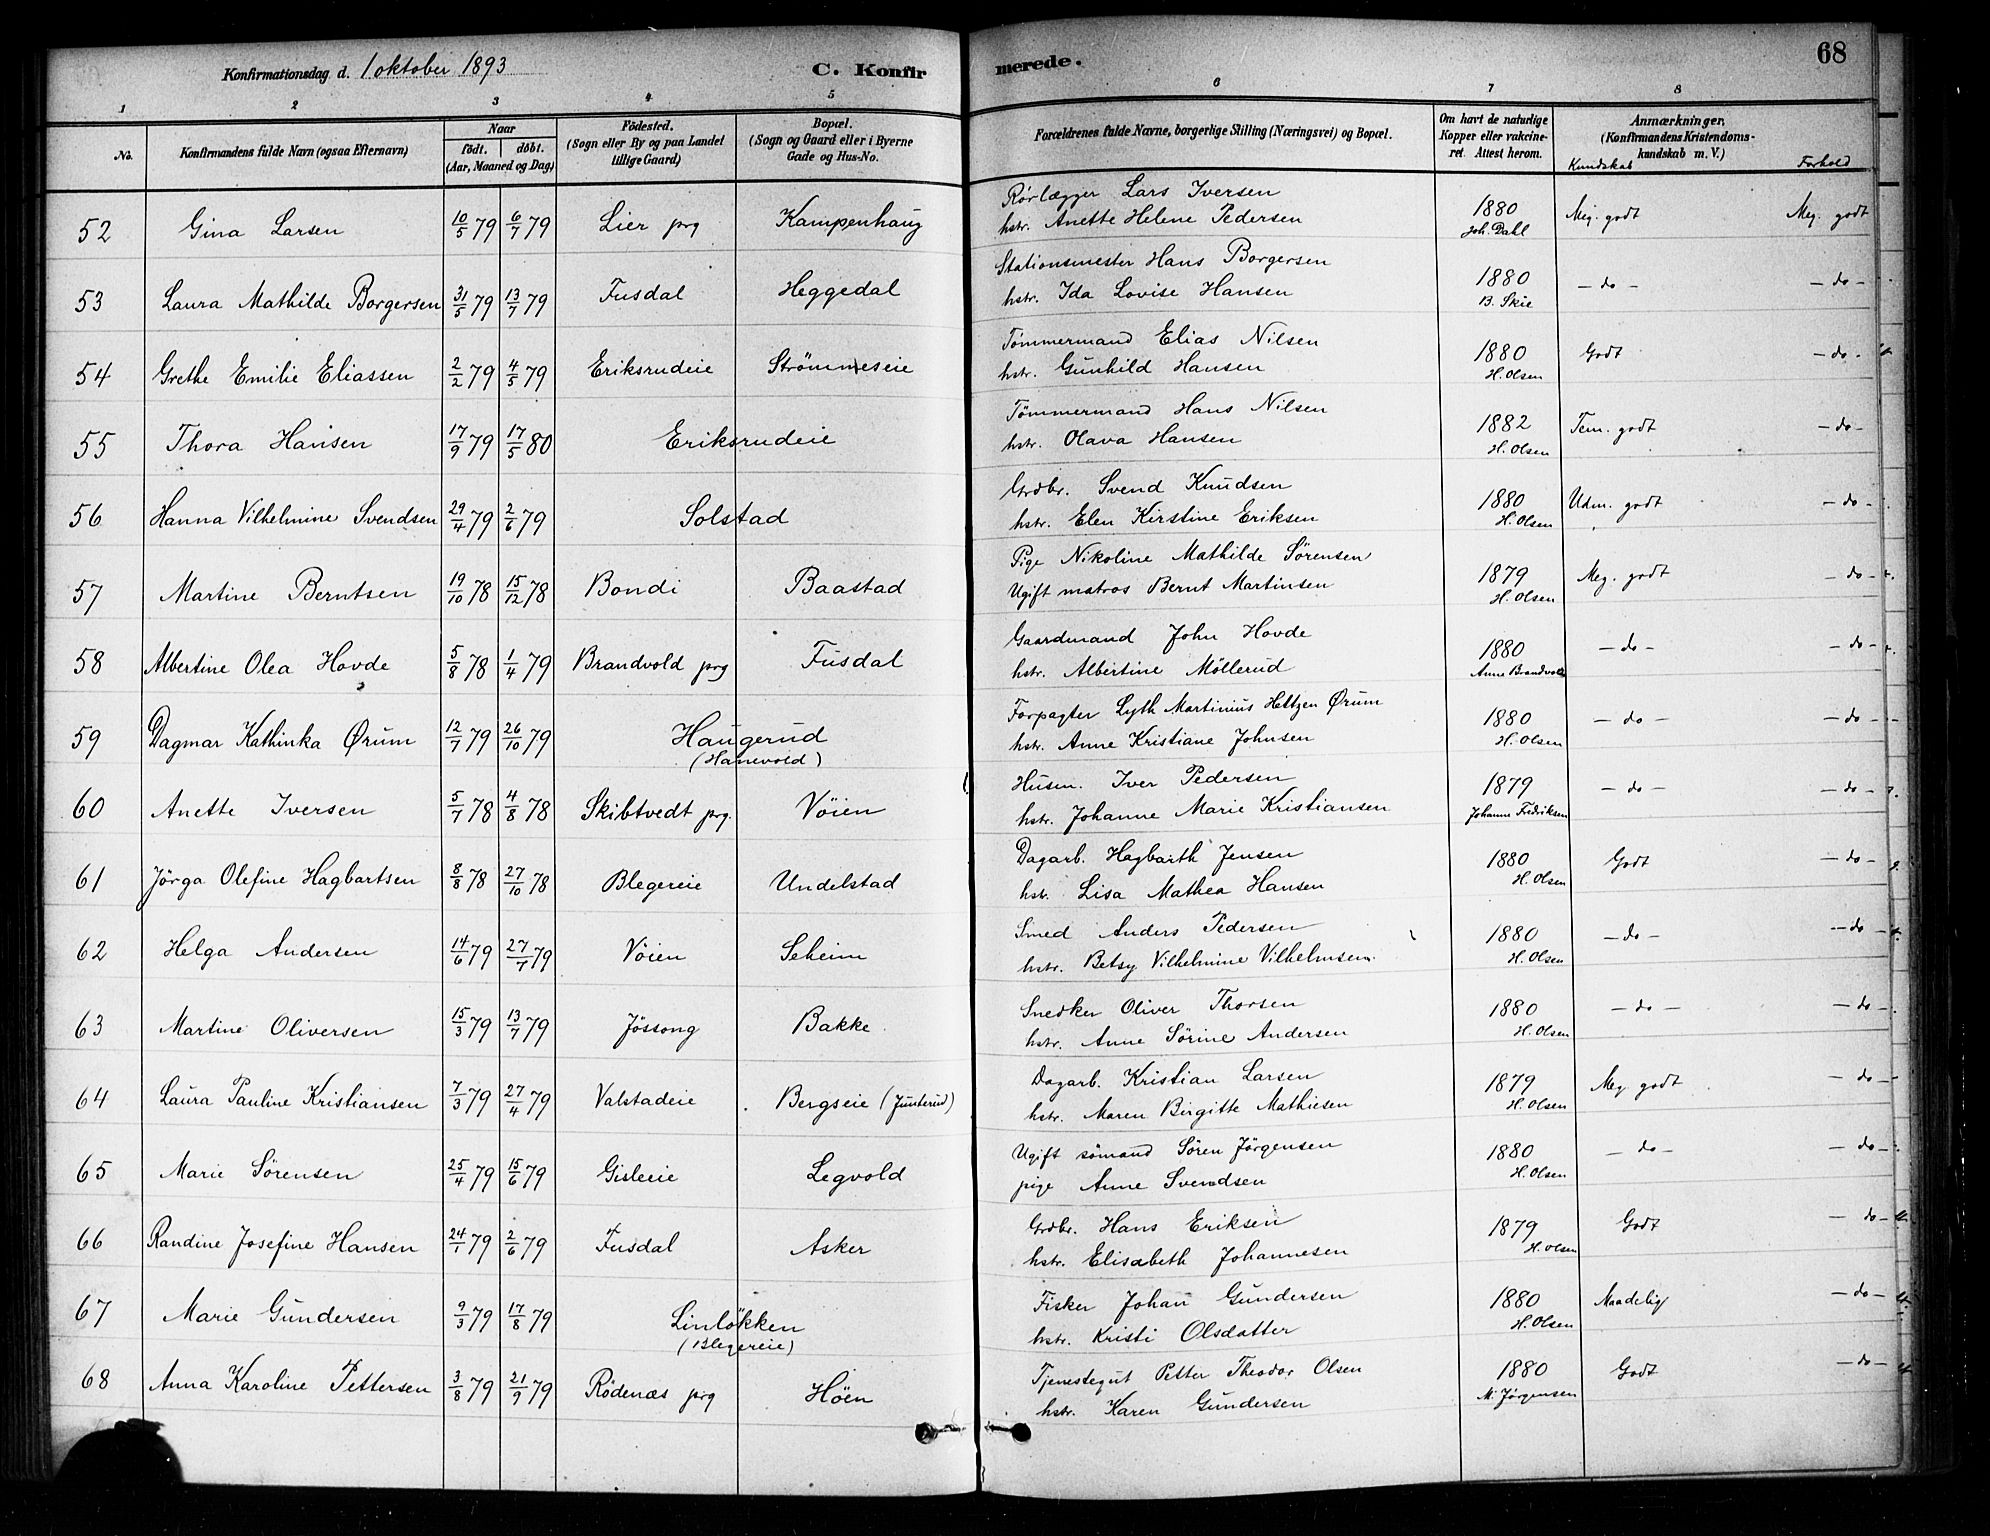 Konfirmationsdag d. 1 oktober 1893
C. Konfirmerede.
68
1 2 3 4 5 6 7 8
No.
Konfirmandens fulde Navn (ogsaa Efternavn)
Naar
födt. döbt.
(Aar, Maaned og Dag)
Födested.
(Sogn eller By og paa Landet
tillige Gaard)
Bopæl.
(Sogn og Gaard eller i Byerne
Gade og Hus-No.
Forældrenes fulde Navne, borgerlige Stilling (Næringsvei) og Bopæl.
Om havt de naturlige
Kopper eller vakcine-
ret. Attest herom.
Anmærkninger,
(Konfirmandens Kristendoms-
kundskab m. V.)
Kundskab Forhold
52 Gina Larsen 10/5 79 6/7 79 Lier prg Kampenhaug Rørlægger Lars Iversen 1880 Meg. godt Meg. godt
hstr. Anette Helene Pedersen Joh. Dahl
53 Laura Mathilde Borgersen 31/5 79 13/7 79 Fusdal Heggedal Stationsmester Hans Borgersen 1880 - do - - do -
hstr. Ida Lovise Hansen B. Skie
54 Grethe Emilie Eliassen 2/2 79 4/5 79 Eriksrudeie Strømmeseie Tømmermand Elias Nilsen 1880 Godt - do -
hstr. Gunhild Hansen H. Olsen
55 Thora Hansen 17/9 79 17/5 80 Eriksrudeie Tømmermand Hans Nilsen 1882 Tem. godt - do -
hstr. Olava Hansen H. Olsen
56 Hanna Vilhelmine Svendsen 29/4 79 2/6 79 Solstad Grdbr. Svend Knudsen 1880 Udm. godt - do -
hstr. Elen Kirstine Eriksen H. Olsen
57 Martine Berntsen 19/10 78 15/12 78 Bondi Baastad Pige Nikoline Mathilde Sørensen 1879 Meg. godt - do -
Ugift matros Bernt Martinsen H. Olsen
58 Albertine Olea Hovde 5/8 78 1/4 79 Brandvold prg Fusdal Gaardmand John Hovde 1880 - do - - do -
hstr. Albertine Möllerud Anne Brandvold
59 Dagmar Kathinka Ørum 12/7 79 26/10 79 Haugerud Forpagter Lyth Martinius Heltzen Ørum 1880 - do - - do -
(Hanevold) hstr. Anne Kristiane Johnsen H. Olsen
60 Anette Iversen 5/7 78 4/8 78 Skibtvedt prg. Vöien Husm. Iver Pedersen 1879 - do - - do -
hstr. Johanne Marie Kristiansen Johanne Fredriksen
61 Jörga Olefine Hagbartsen 8/8 78 27/10 78 Blegereie Undelstad Dagarb. Hagbarth Jensen 1880 Godt - do -
hstr. Lisa Mathea Hansen H. Olsen
62 Helga Andersen 14/6 79 27/7 79 Vöien Seheim Smed Anders Pedersen 1880 - do - - do -
hstr. Betsy Vilhelmine Vilhelmsen. H. Olsen
63 Martine Oliversen 15/3 79 13/7 79 Jössong Bakke Snedker Oliver Thorsen 1880 - do - - do -
hstr. Anne Sörine Andersen H. Olsen
64 Laura Pauline Kristiansen 7/3 79 27/4 79 Valstadeie Bergseie (Junterud) Dagarb. Kristian Larsen 1879 Meg godt - do -
hstr. Maren Birgitte Mathiesen H. Olsen
65 Marie Sörensen 25/4 79 15/6 79 Gisleeie Legvold Ugift sömand Sören Jörgensen 1880 - do - - do -
pige Anne Svendsen H. Olsen
66 Randine Josefine Hansen 24/1 79 2/6 79 Fusdal Asker Grdbr. Hans Eriksen 1879 Godt - do -
hstr. Elisabeth Johannesen H. Olsen
67 Marie Gundersen 9/3 79 17/8 79 Linlökken Fisker Johan Gundersen 1880 Maadelig - do -
(Blegereie) hstr. Kristi Olsdatter H. Olsen
68 Anna Karoline Pettersen 3/8 79 21/9 79 Rödenæs prg Höen Tjenestegut Petter Theodor Olsen 1880 Godt - do -
hstr. Karen Gundersen M. Jørgensen